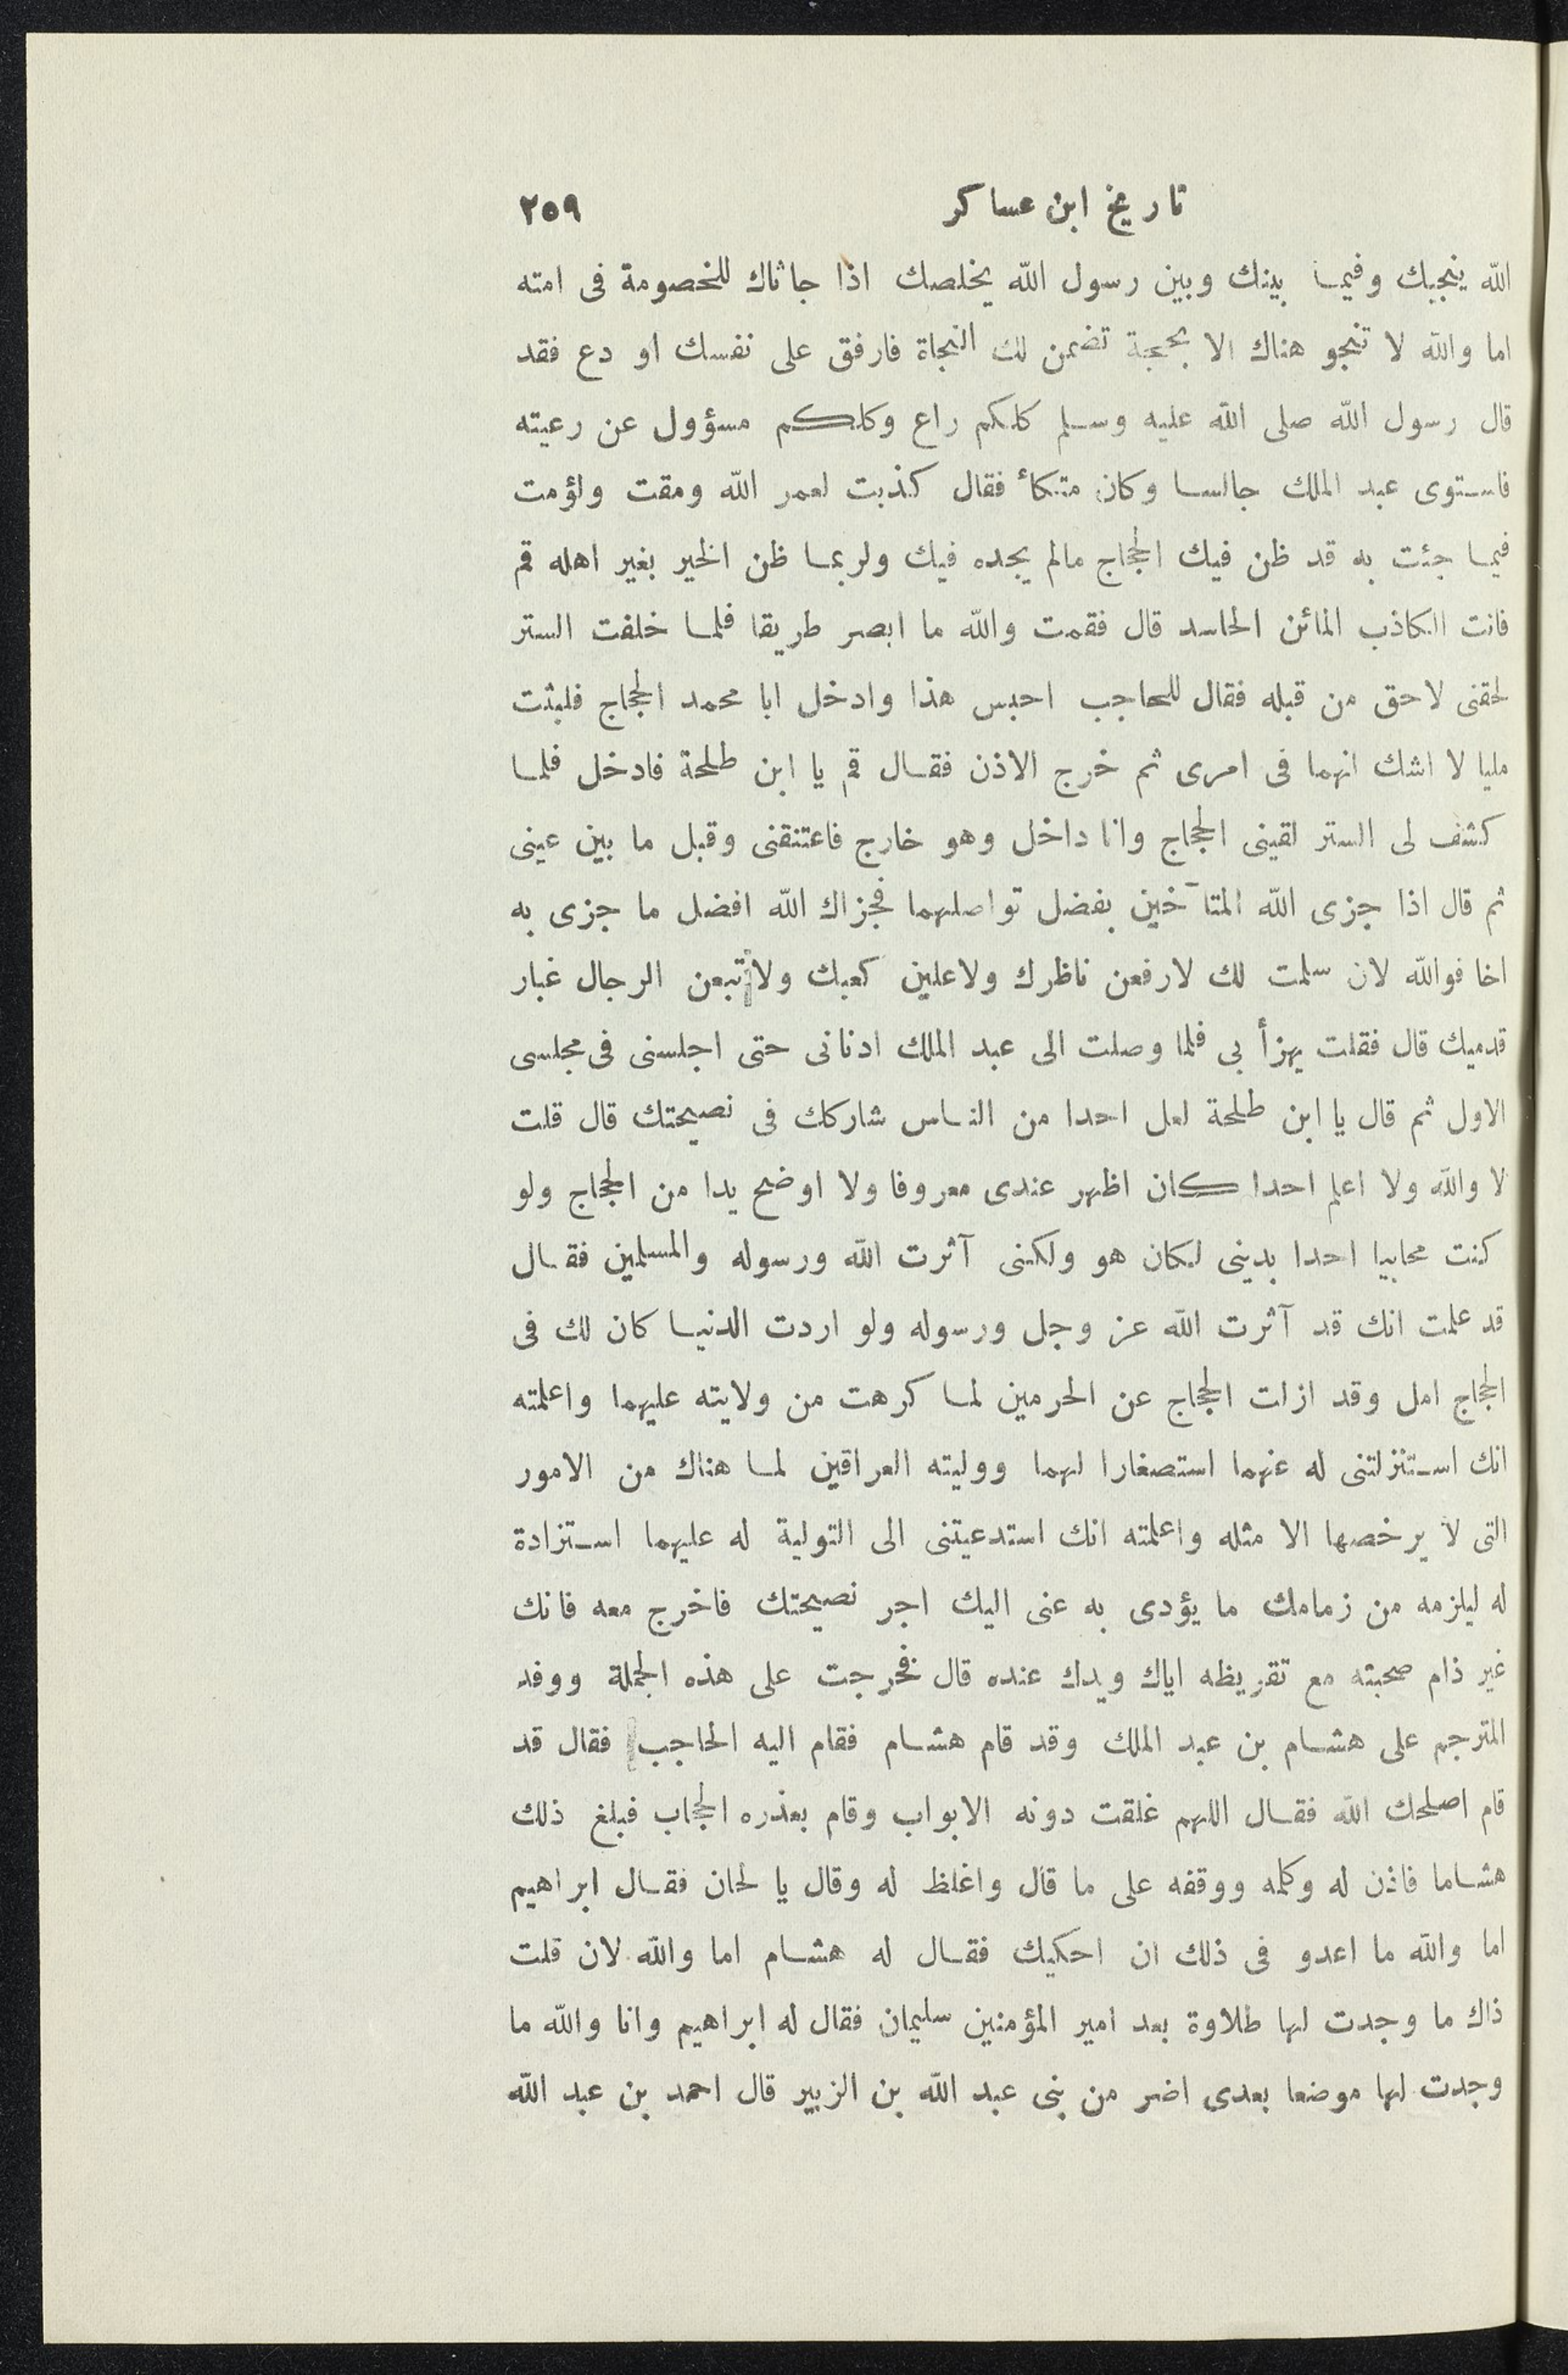 تاريخ ابن عساكر ٢٥٩
الله ينجيك وفيما بينك وبين رسول الله يخلصك اذا جاثاك للخصومة فى امته
اما والله لا تنجو هناك الا بحجة تضمن لك النجاة فارفق على نفسك او دع فقد
قال رسول الله صلى الله عليه وسلم كلكم راع وكلكم مسؤول عن رعيته
فاستوى عبد الملك جالسا وكان متكأ فقال كذبت لعمر الله ومقت ولؤمت
فيما جئت به قد ظن فيك الحجاج مالم يجده فيك ولربما ظن الخير بغير اهله قم
فانت الكاذب المائن الحاسد قال فقمت والله ما ابصر طريقا فلما خلفت الستر
لحقنى لاحق من قبله فقال للحاجب احبس هذا وادخل ابا محمد الحجاج فلبثت
مليا لا اشك انهما فى امرى ثم خرج الاذن فقال قم يا ابن طلحة فادخل فلما
كشف لى الستر لقينى الحجاج وانا داخل وهو خارج فاعتنقنى وقبل ما بين عينى
ثم قال اذا جزى الله المتآخين بفضل تواصلهما فجزاك الله افضل ما جزى به
اخا فوالله لان سلمت لك لارفعن ناظرك ولاعلين كعبك ولاتبعن الرجال غبار
قدميك قال فقلت يهزأ بى فلما وصلت الى عبد الملك ادنانى حتى اجلسنى فى مجلسى
الاول ثم قال يا ابن طلحة لعل احدا من الناس شاركك فى نصيحتك قال قلت
لا والله ولا اعلم احدا كان اظهر عندى معروفا ولا اوضح يدا من الحجاج ولو
كنت محابيا احدا بدينى لكان هو ولكنى آثرت الله ورسوله والمسلمين فقال
قد علمت انك قد آثرت الله عز وجل ورسوله ولو اردت الدنيا كان لك فى
الحجاج امل وقد ازلت الحجاج عن الحرمين لما كرهت من ولايته عليهما واعلمته
انك استنزلتنى له عنهما استصغارا لهما ووليته العراقين لما هناك من الامور
التى لا يرخصها الا مثله واعلمته انك استدعيتنى الى التولية له عليهما استزادة
له ليلزمه من زمامك ما يؤدى به عنى اليك اجر نصيحتك فاخرج معه فانك
غير ذام صحبته مع تقريظه اياك ويدك عنده قال فخرجت على هذه الجملة ووفد
المترجم على هشام بن عبد الملك وقد قام هشام فقام اليه الحاجب فقال قد
قام اصلحك الله فقال اللهم غلقت دونه الابواب وقام بعذره الحجاب فبلغ ذلك
هشاما فاذن له وكلمه ووقفه على ما قال واغلظ له وقال يا لحان فقال ابراهيم
اما والله ما اعدو فى ذلك ان احكيك فقال له هشام اما والله لان قلت
ذاك ما وجدت لها طلاوة بعد امير المؤمنين سليمان فقال له ابراهيم وانا والله ما
وجدت لها موضعا بعدى اضر من بنى عبد الله بن الزبير قال احمد بن عبد الله